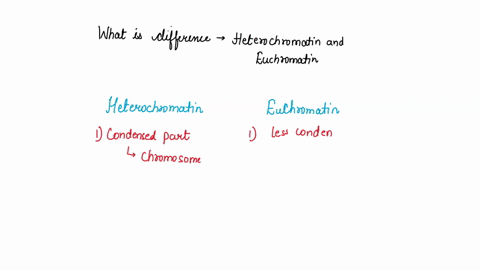 What is difference → Heterochromatin and
Euchromatin
Heterochromatin
Euchromatin
1) Condensed part
↳ Chromosome
1) less conden